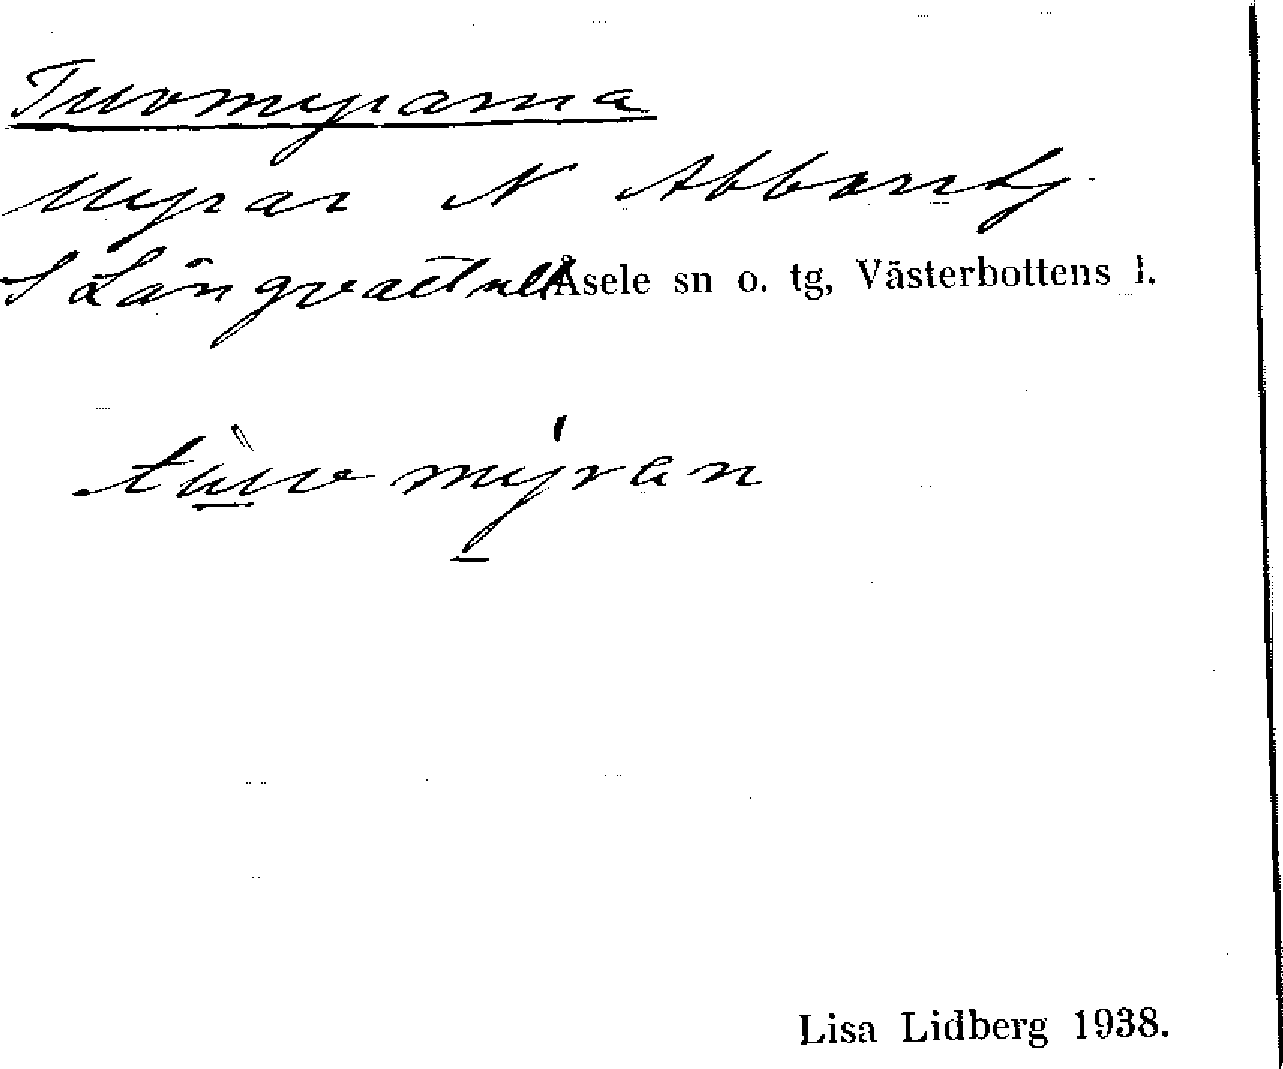 Tuvomyrarna
Myrar N Abborrtj.
S Långvattnet Åsele sn o. tg, Västerbottens l.
tùvomýran
Lisa Lidberg 1938.